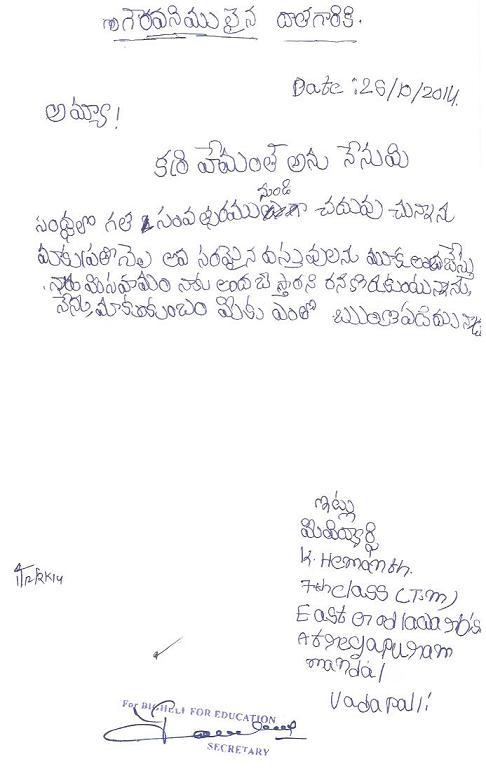 గౌరవనియులైన దాతగారికి.
Date :26/10/2014.
అమ్మా!
కరి హేమంత్ అను నేను మి
నుండి
సంస్థలో గత 2 సంవత్సరము చదువు చున్నాను
మాకు ప్రతి నెల అవసరమైన వస్తువులను మాకు అందచేస్తు
మిసహాయం నాకు అందచే స్తారని
నేను, మాకుటుంబం మీకు ఎంతో ఋణపడి
ఇట్లు
మివిద్యార్థి
K. Hemanth.
7th class (T.m)
East Godavari
Atreyapuram
mandal
Vadapalli
For BIGHELP FOR EDUCATION
SECRETARY